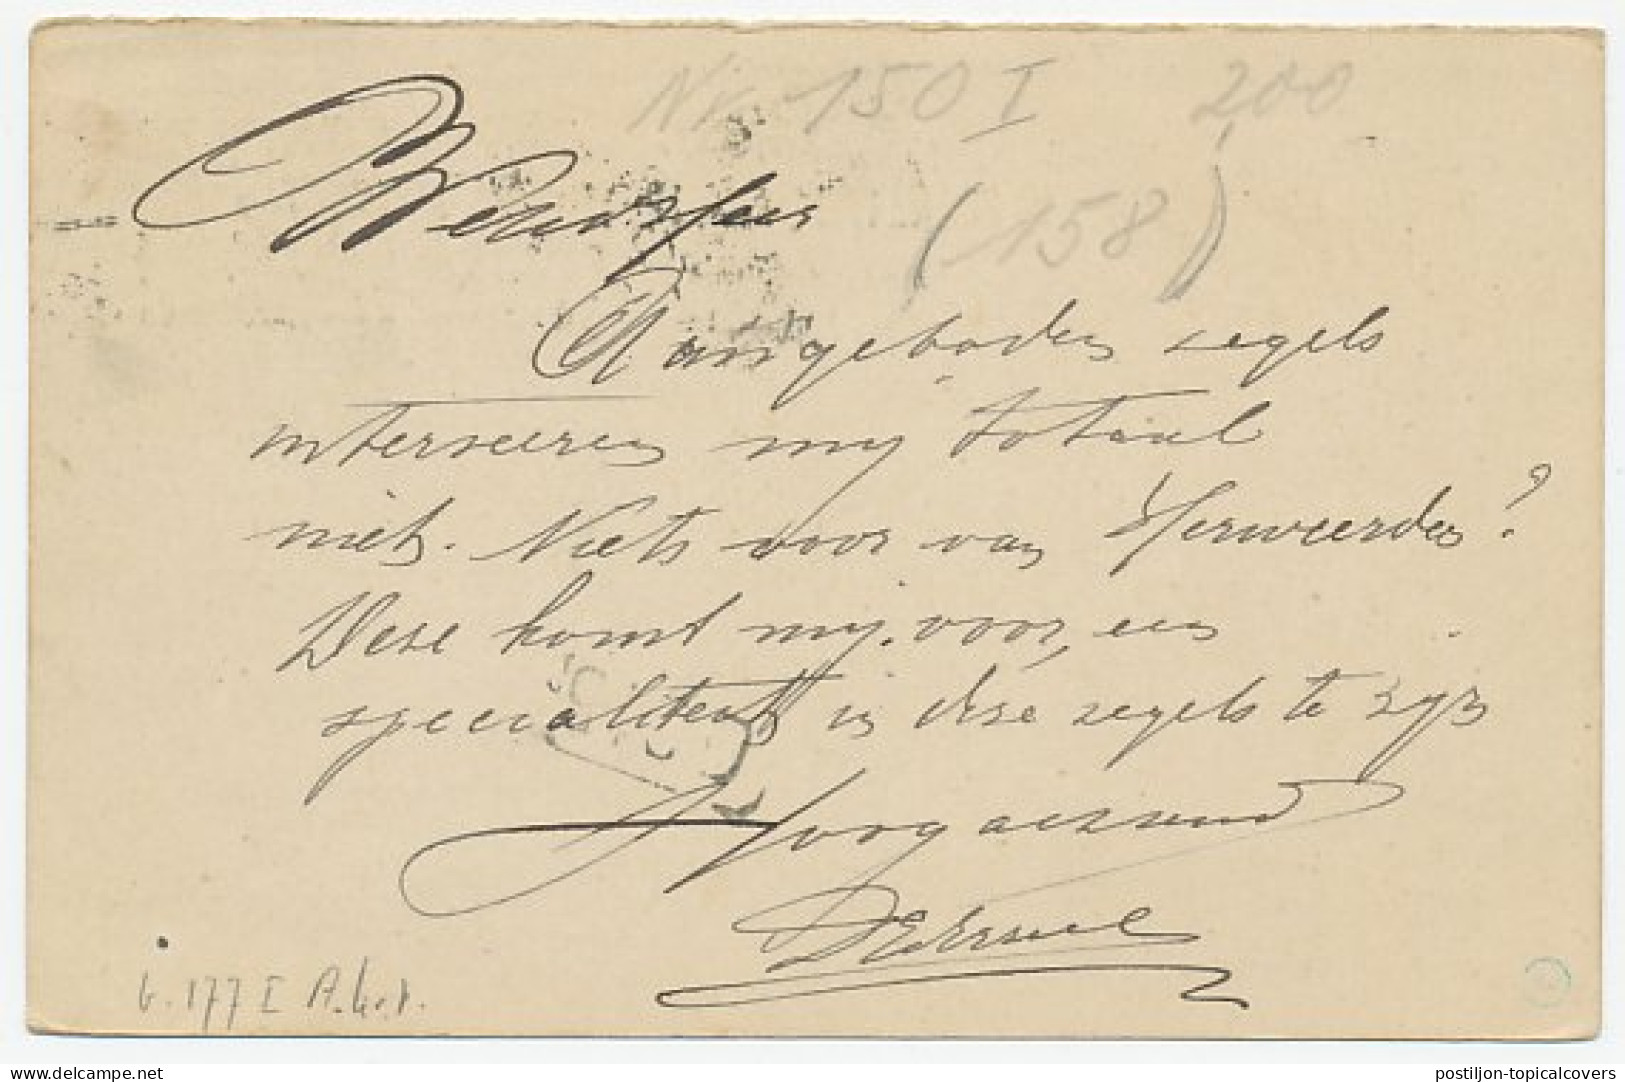 Nr 150 I 200
(158)
Weledheer
Aangeboden zegels
interseeren my totaal
niets. Niets voor van Herweerden?
Deze komt my voor, een
specialiteit in deze zegels te zyn
Hoogachtend
6.177 I A.4.1.
www.delcampe.net
postiljon-topicalcovers